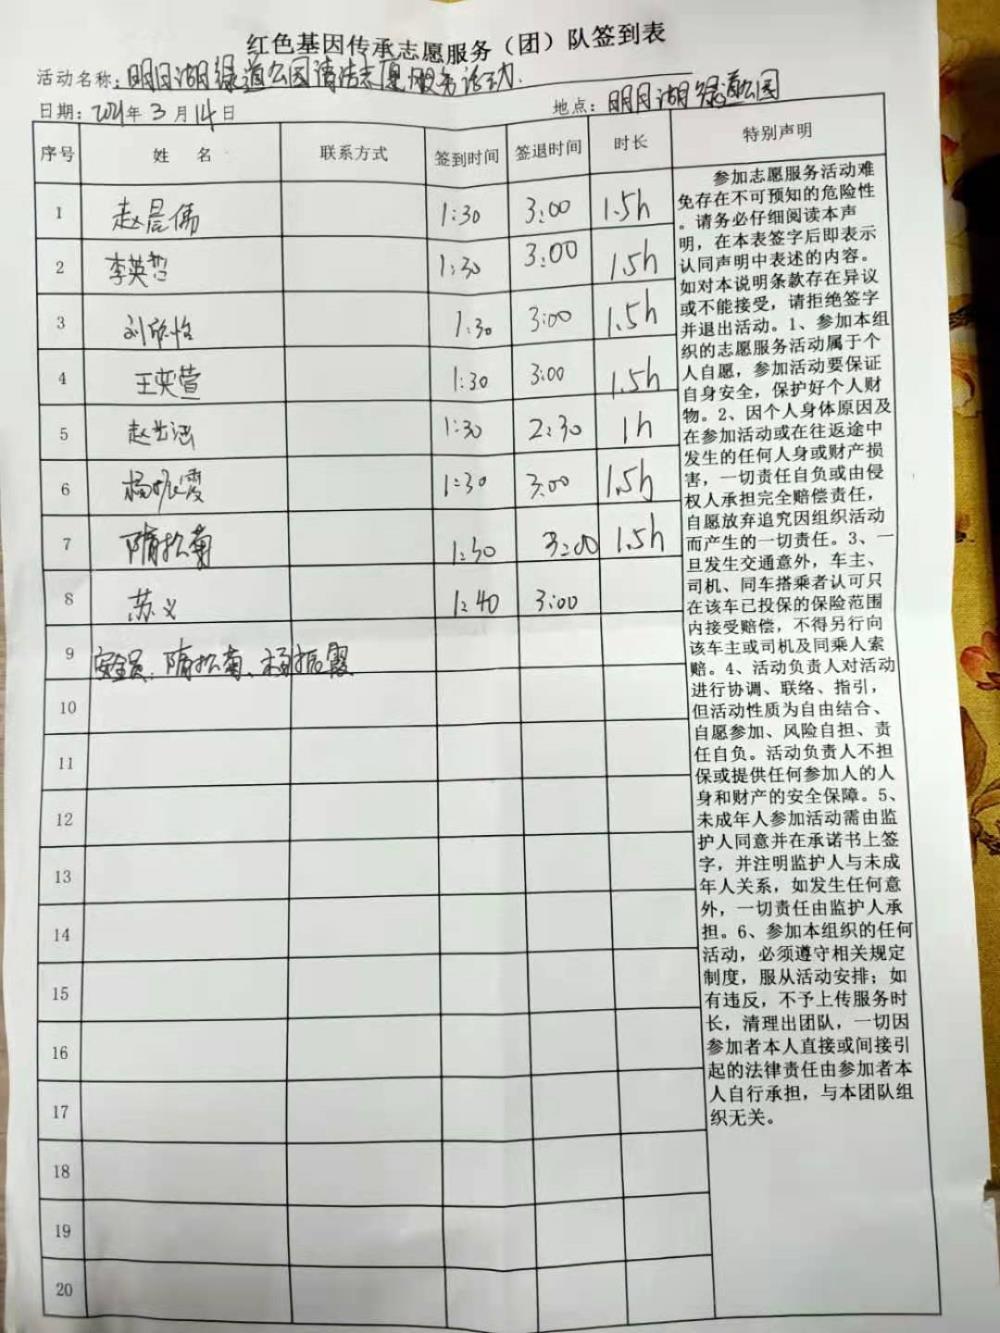 红色基因传承志愿服务（团）队签到表
活动名称：明月湖绿道公园清洁志愿服务活动.
日期：2021年3月14日 地点：明月湖绿道公园
序号 姓名 联系方式 签到时间 签退时间 时长 特别声明
1 赵晨儒 1:30 3:00 1.5h
2 李英哲 1:30 3:00 1.5h
3 刘欣怡 1:30 3:00 1.5h
4 王英萱 1:30 3:00 1.5h
5 赵 涵 1:30 2:30 1h
6 杨振霞 1:30 3:00 1.5h
7 隋松菊 1:30 3:00 1.5h
8 苏义 1:40 3:00
9 安全员：隋松菊、杨振霞
10
11
12
13
14
15
16
17
18
19
20
参加志愿服务活动难
免存在不可预知的危险性
。请务必仔细阅读本声
明，在本表签字后即表示
认同声明中表述的内容。
如对本说明条款存在异议
或不能接受，请拒绝签字
并退出活动。1、参加本组
织的志愿服务活动属于个
人自愿，参加活动要保证
自身安全，保护好个人财
物。2、因个人身体原因及
在参加活动或在往返途中
发生的任何人身或财产损
害，一切责任自负或由侵
权人承担完全赔偿责任，
自愿放弃追究因组织活动
而产生的一切责任。3、一
旦发生交通意外，车主、
司机、同车搭乘者认可只
在该车已投保的保险范围
内接受赔偿，不得另行向
该车主或司机及同乘人索
赔。4、活动负责人对活动
进行协调、联络、指引，
但活动性质为自由结合、
自愿参加、风险自担、责
任自负。活动负责人不担
保或提供任何参加人的人
身和财产的安全保障。5、
未成年人参加活动需由监
护人同意并在承诺书上签
字，并注明监护人与未成
年人关系，如发生任何意
外，一切责任由监护人承
担。6、参加本组织的任何
活动，必须遵守相关规定
制度，服从活动安排；如
有违反，不予上传服务时
长，清理出团队，一切因
参加者本人直接或间接引
起的法律责任由参加者本
人自行承担，与本团队组
织无关。